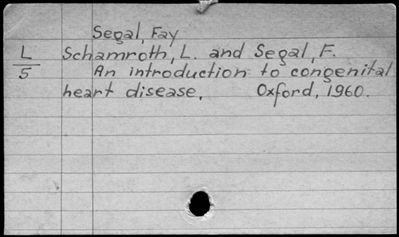 Segal, Fay
L Schamroth, L. and Segal, F.
5 An introduction to congenital
heart disease, Oxford, 1960.